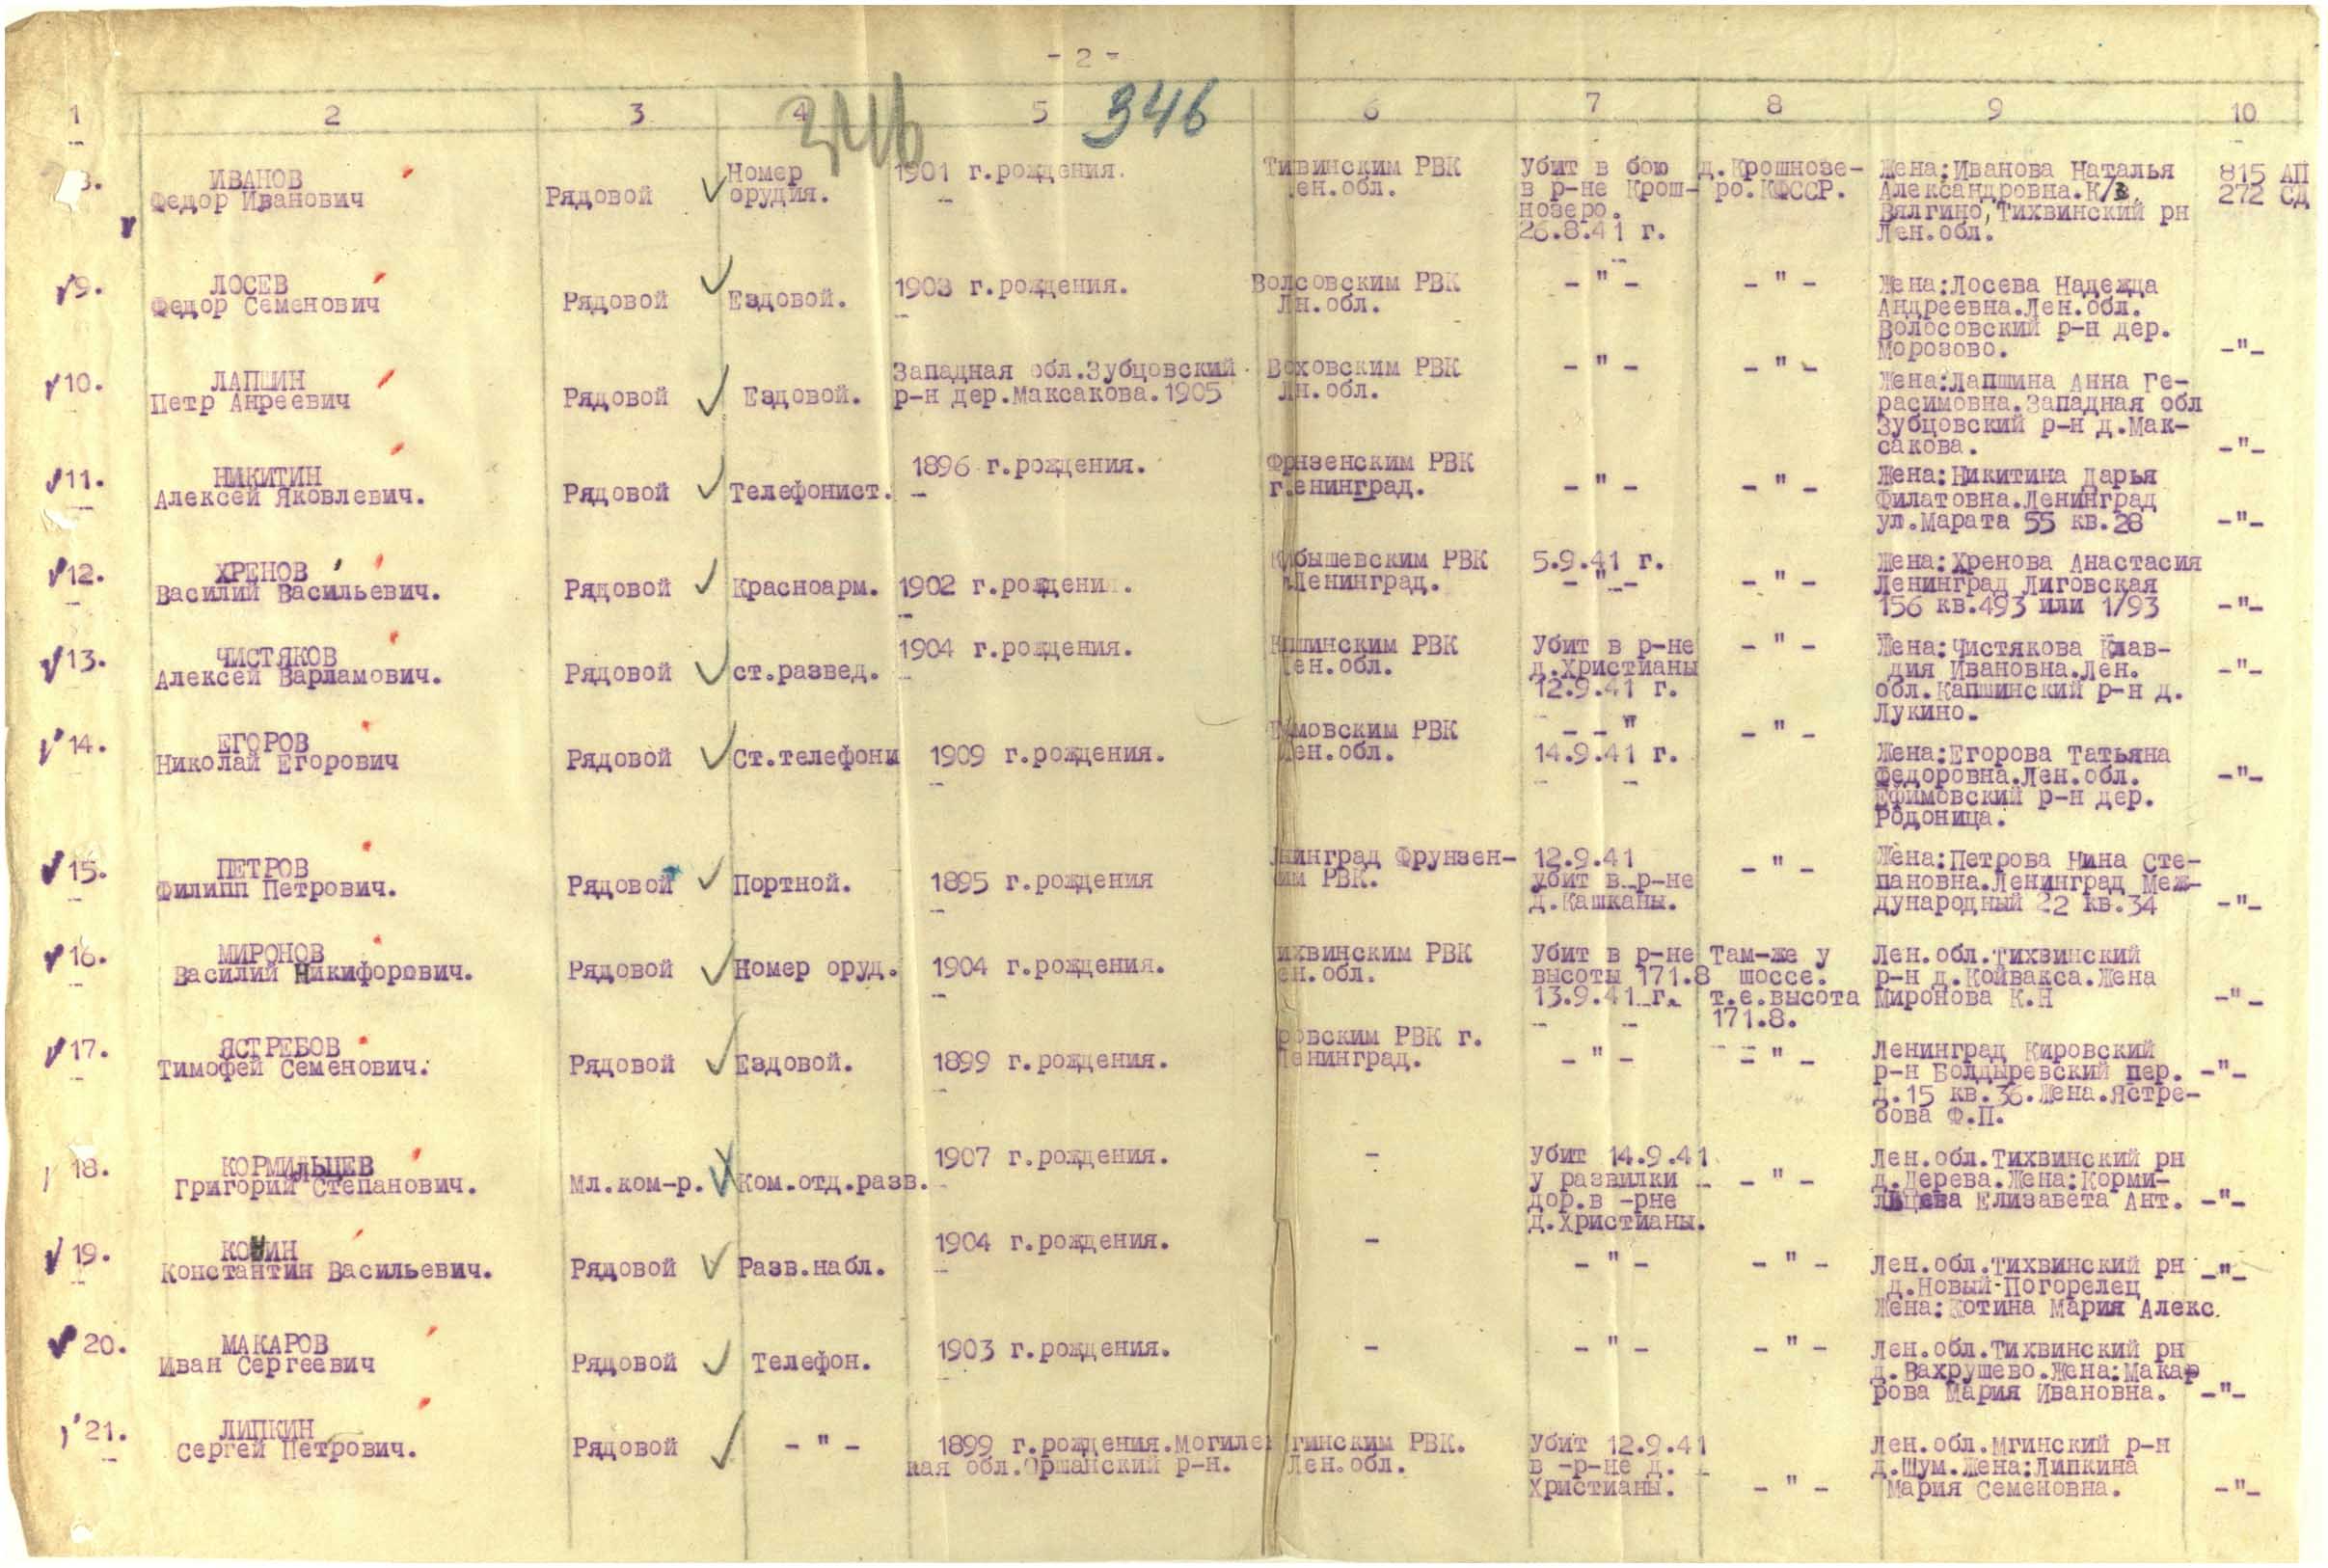 - 2 -
1 2 3 4 5 6 7 8 9 10
346 346
8. ИВАНОВ
Федор Иванович
Рядовой
Номер
орудия.
1901 г.рождения.
Тивинским РВК
ен.обл.
Убит в бою
в р-не Крош-
нозеро.
26.8.41 г.
д.Крошнозе-
ро.КФССР.
Жена:Иванова Наталья
Александровна.К/з.
Вялгино,Тихвинский рн
Лен.обл.
815 АП
272 СД
9. ЛОСЕВ
Федор Семенович
Рядовой
Ездовой.
1903 г.рождения.
Волсовским РВК
Лн.обл.
- " -
- " -
Жена:Лосева Надежда
Андреевна.Лен.обл.
Волосовский р-н дер.
Морозово.
-"-
10. ЛАПШИН
Петр Анреевич
Рядовой
Ездовой.
Западная обл.Зубцовский
р-н дер.Максакова.1905
Воховским РВК
Лн.обл.
- " -
- " -
Жена:Лапшина Анна Ге-
расимовна.Западная обл
Зубцовский р-н д.Мак-
сакова.
-"-
11. НИКИТИН
Алексей Яковлевич.
Рядовой
Телефонист.
1896 г.рождения.
Фрнзенским РВК
г.енинград.
- " -
- " -
Жена:Никитина Дарья
Филатовна.Ленинград
ул.Марата 55 кв.28
-"-
12. ХРЕНОВ
Василий Васильевич.
Рядовой
Красноарм.
1902 г.рождени .
Кбышевским РВК
г.Ленинград.
5.9.41 г.
- " -
- " -
Жена:Хренова Анастасия
Ленинград Лиговская
156 кв.493 или 1/93
-"-
13. ЧИСТЯКОВ
Алексей Варламович.
Рядовой
ст.развед.
1904 г.рождения.
Кпшинским РВК
Лен.обл.
Убит в р-не
д.Христианы
12.9.41 г.
- " -
Жена:Чистякова Клав-
дия Ивановна.Лен.
обл.Капшинский р-н д.
Лукино.
-"-
14. ЕГОРОВ
Николай Егорович
Рядовой
Ст.телефони
1909 г.рождения.
имовским РВК
Лен.обл.
- - "
14.9.41 г.
- " -
Жена:Егорова Татьяна
Федоровна.Лен.обл.
Ефимовский р-н дер.
Родоница.
-"-
15. ПЕТРОВ
Филипп Петрович.
Рядовой
Портной.
1895 г.рождения
Лнинград Фрунзен-
им РВК.
12.9.41
убит в р-не
д.Кашканы.
- " -
Жена:Петрова Нина Сте-
пановна.Ленинград Меж-
дународный 22 кв.34
-"-
16. МИРОНОВ
Василий Никифорович.
Рядовой
Номер оруд.
1904 г.рождения.
ихвинским РВК
ен.обл.
Убит в р-не
высоты 171.8
13.9.41 г.
Там-же у
шоссе.
т.е.высота
171.8.
Лен.обл.Тихвинский
р-н д.Койвакса.Жена
Миронова К.Н
-"-
17. ЯСТРЕБОВ
Тимофей Семенович.
Рядовой
Ездовой.
1899 г.рождения.
ровским РВК г.
Ленинград.
- " -
- " -
Ленинград Кировский
р-н Болдыревский пер.
д.15 кв.36.Жена.Ястре-
бова Ф.П.
-"-
18. КОРМИЛЬЦЕВ
Григорий Степанович.
Мл.ком-р.
Ком.отд.разв.
1907 г.рождения.
-
Убит 14.9.41
у развилки
дор.в -рне
д.Христианы.
- " -
Лен.обл.Тихвинский рн
д.Дерева.Жена:Корми-
льцева Елизавета Ант.
-"-
19.
Константин Васильевич.
Рядовой
Разв.набл.
1904 г.рождения.
-
- " -
- " -
Лен.обл.Тихвинский рн
д.Новый-Погорелец
Жена:Котина Мария Алекс.
-"-
20. МАКАРОВ
Иван Сергеевич
Рядовой
Телефон.
1903 г.рождения.
-
- " -
- " -
Лен.обл.Тихвинский рн
д.Вахрушево.Жена:Макар
рова Мария Ивановна.
-"-
21. ЛИПКИН
Сергей Петрович.
Рядовой
- " -
1899 г.рождения.Могиле
кая обл.Оршанский р-н.
гинским РВК.
Лен.обл.
Убит 12.9.41
в -р-не д.
Христианы.
- " -
Лен.обл.Мгинский р-н
д.Шум.Жена:Липкина
Мария Семеновна.
-"-